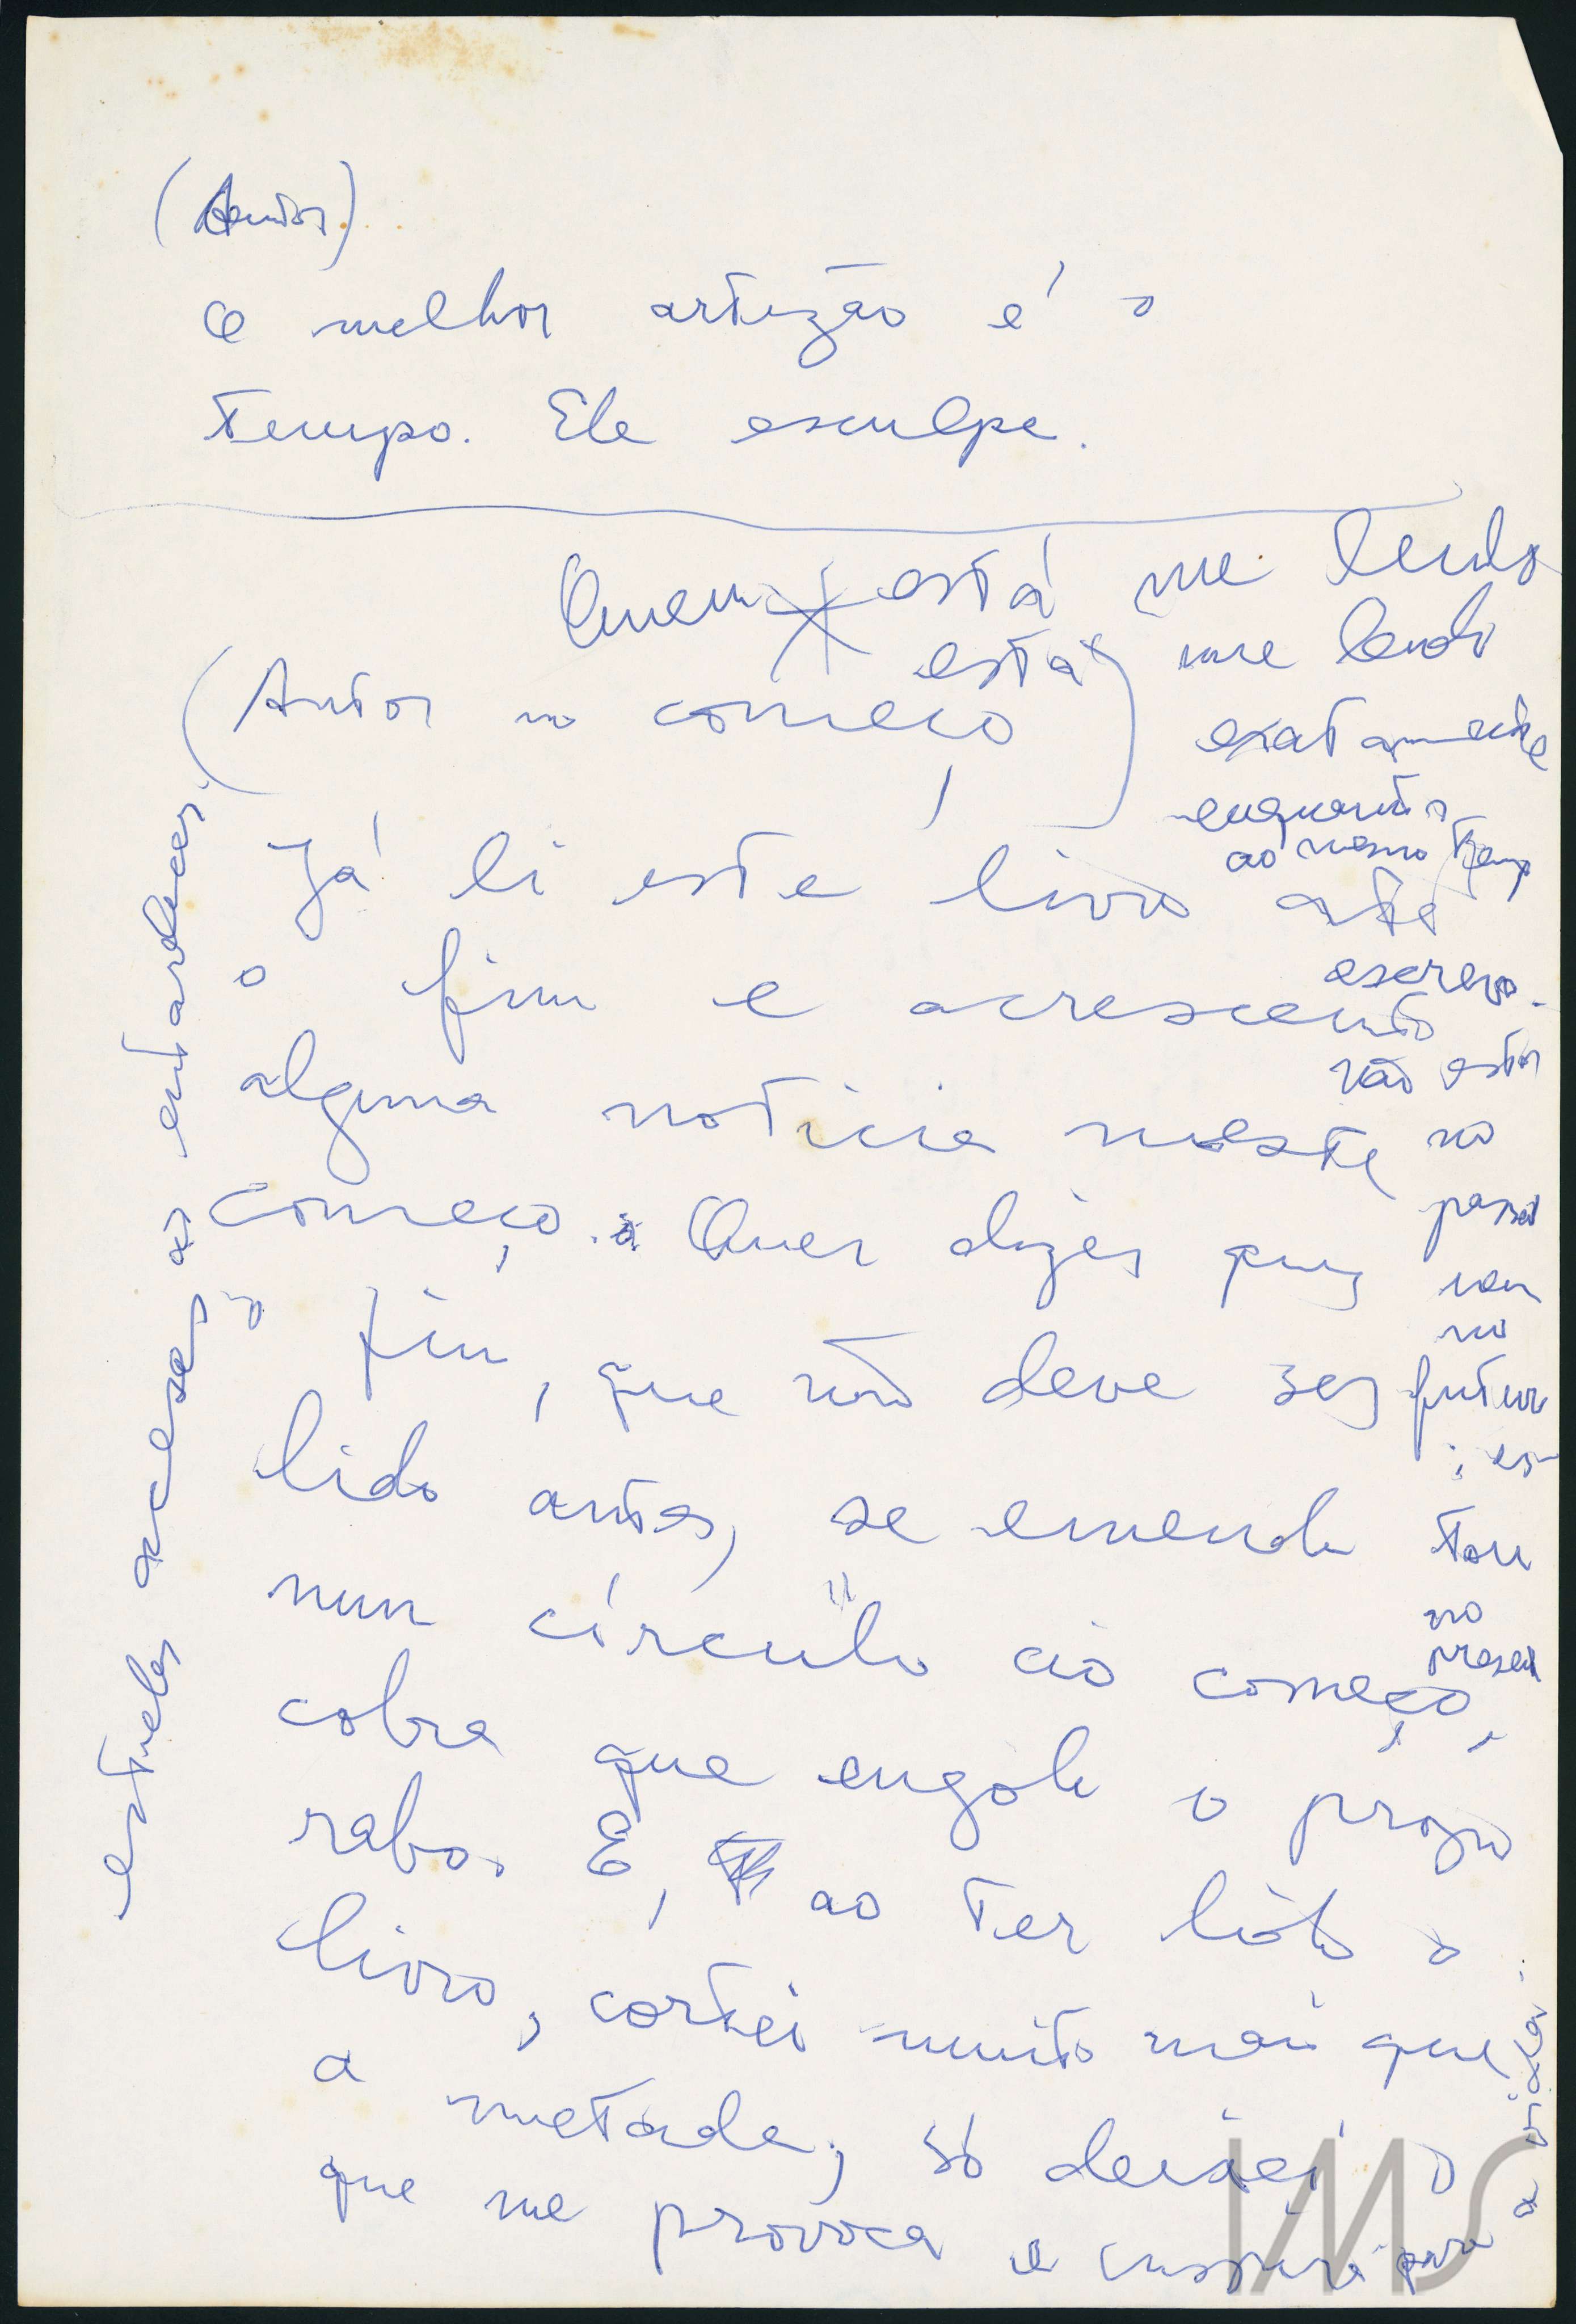 (Autor)
O melhor artezão é o
tempo. Ele esculpe.
Quem está me lendo
está me lendo
exatamente
enquanto
ao mesmo temp
escrevo.
não estou
no
passad
nem
no
futuro
; es-
tou
no
present
(Autor no começo)
Já li este livro até
o fim e acrescento
alguma noticia neste
começo. Quer dizer que
o fim, que não deve ser
lido antes, se emenda
num círculo ao começo,
cobra que engole o próprio
rabo. E, ao ter lido o
livro, cortei muito mais que
a metade, só deixei o
que me provoca e inspira para
a vida:
estrelas acesas ao entardecer.
IMS